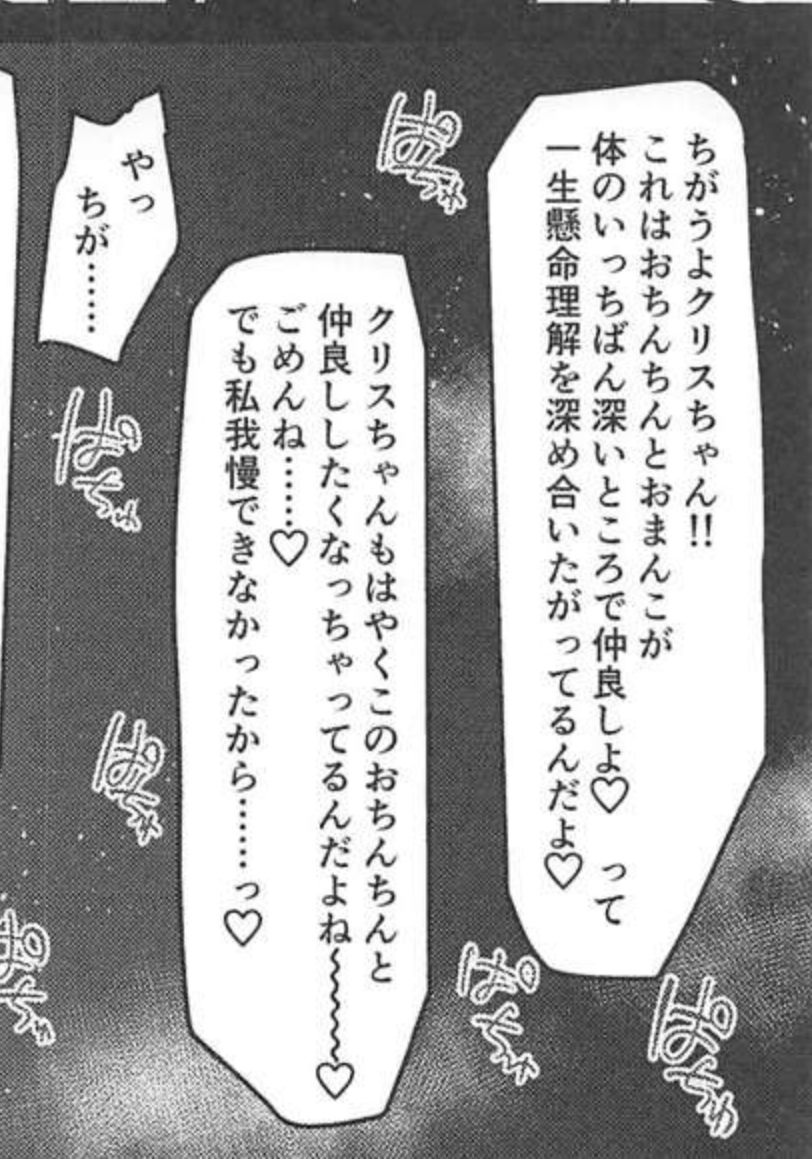 ちがうよクリスちゃん!!
これはおちんちんとおまんこが
体のいっちばん深いところで仲良しよ♡ って
一生懸命理解を深め合いたがってるんだよ♡
クリスちゃんもはやくこのおちんちんと
仲良ししたくなっちゃってるんだよね〜〜〜♡
ごめんね……♡
でも私我慢できなかったから……っ♡
やっ
ちが……
ぱちゅ
ぱちゅ
ぱちゅ
ぱちゅ
ぱちゅ
ぱちゅ